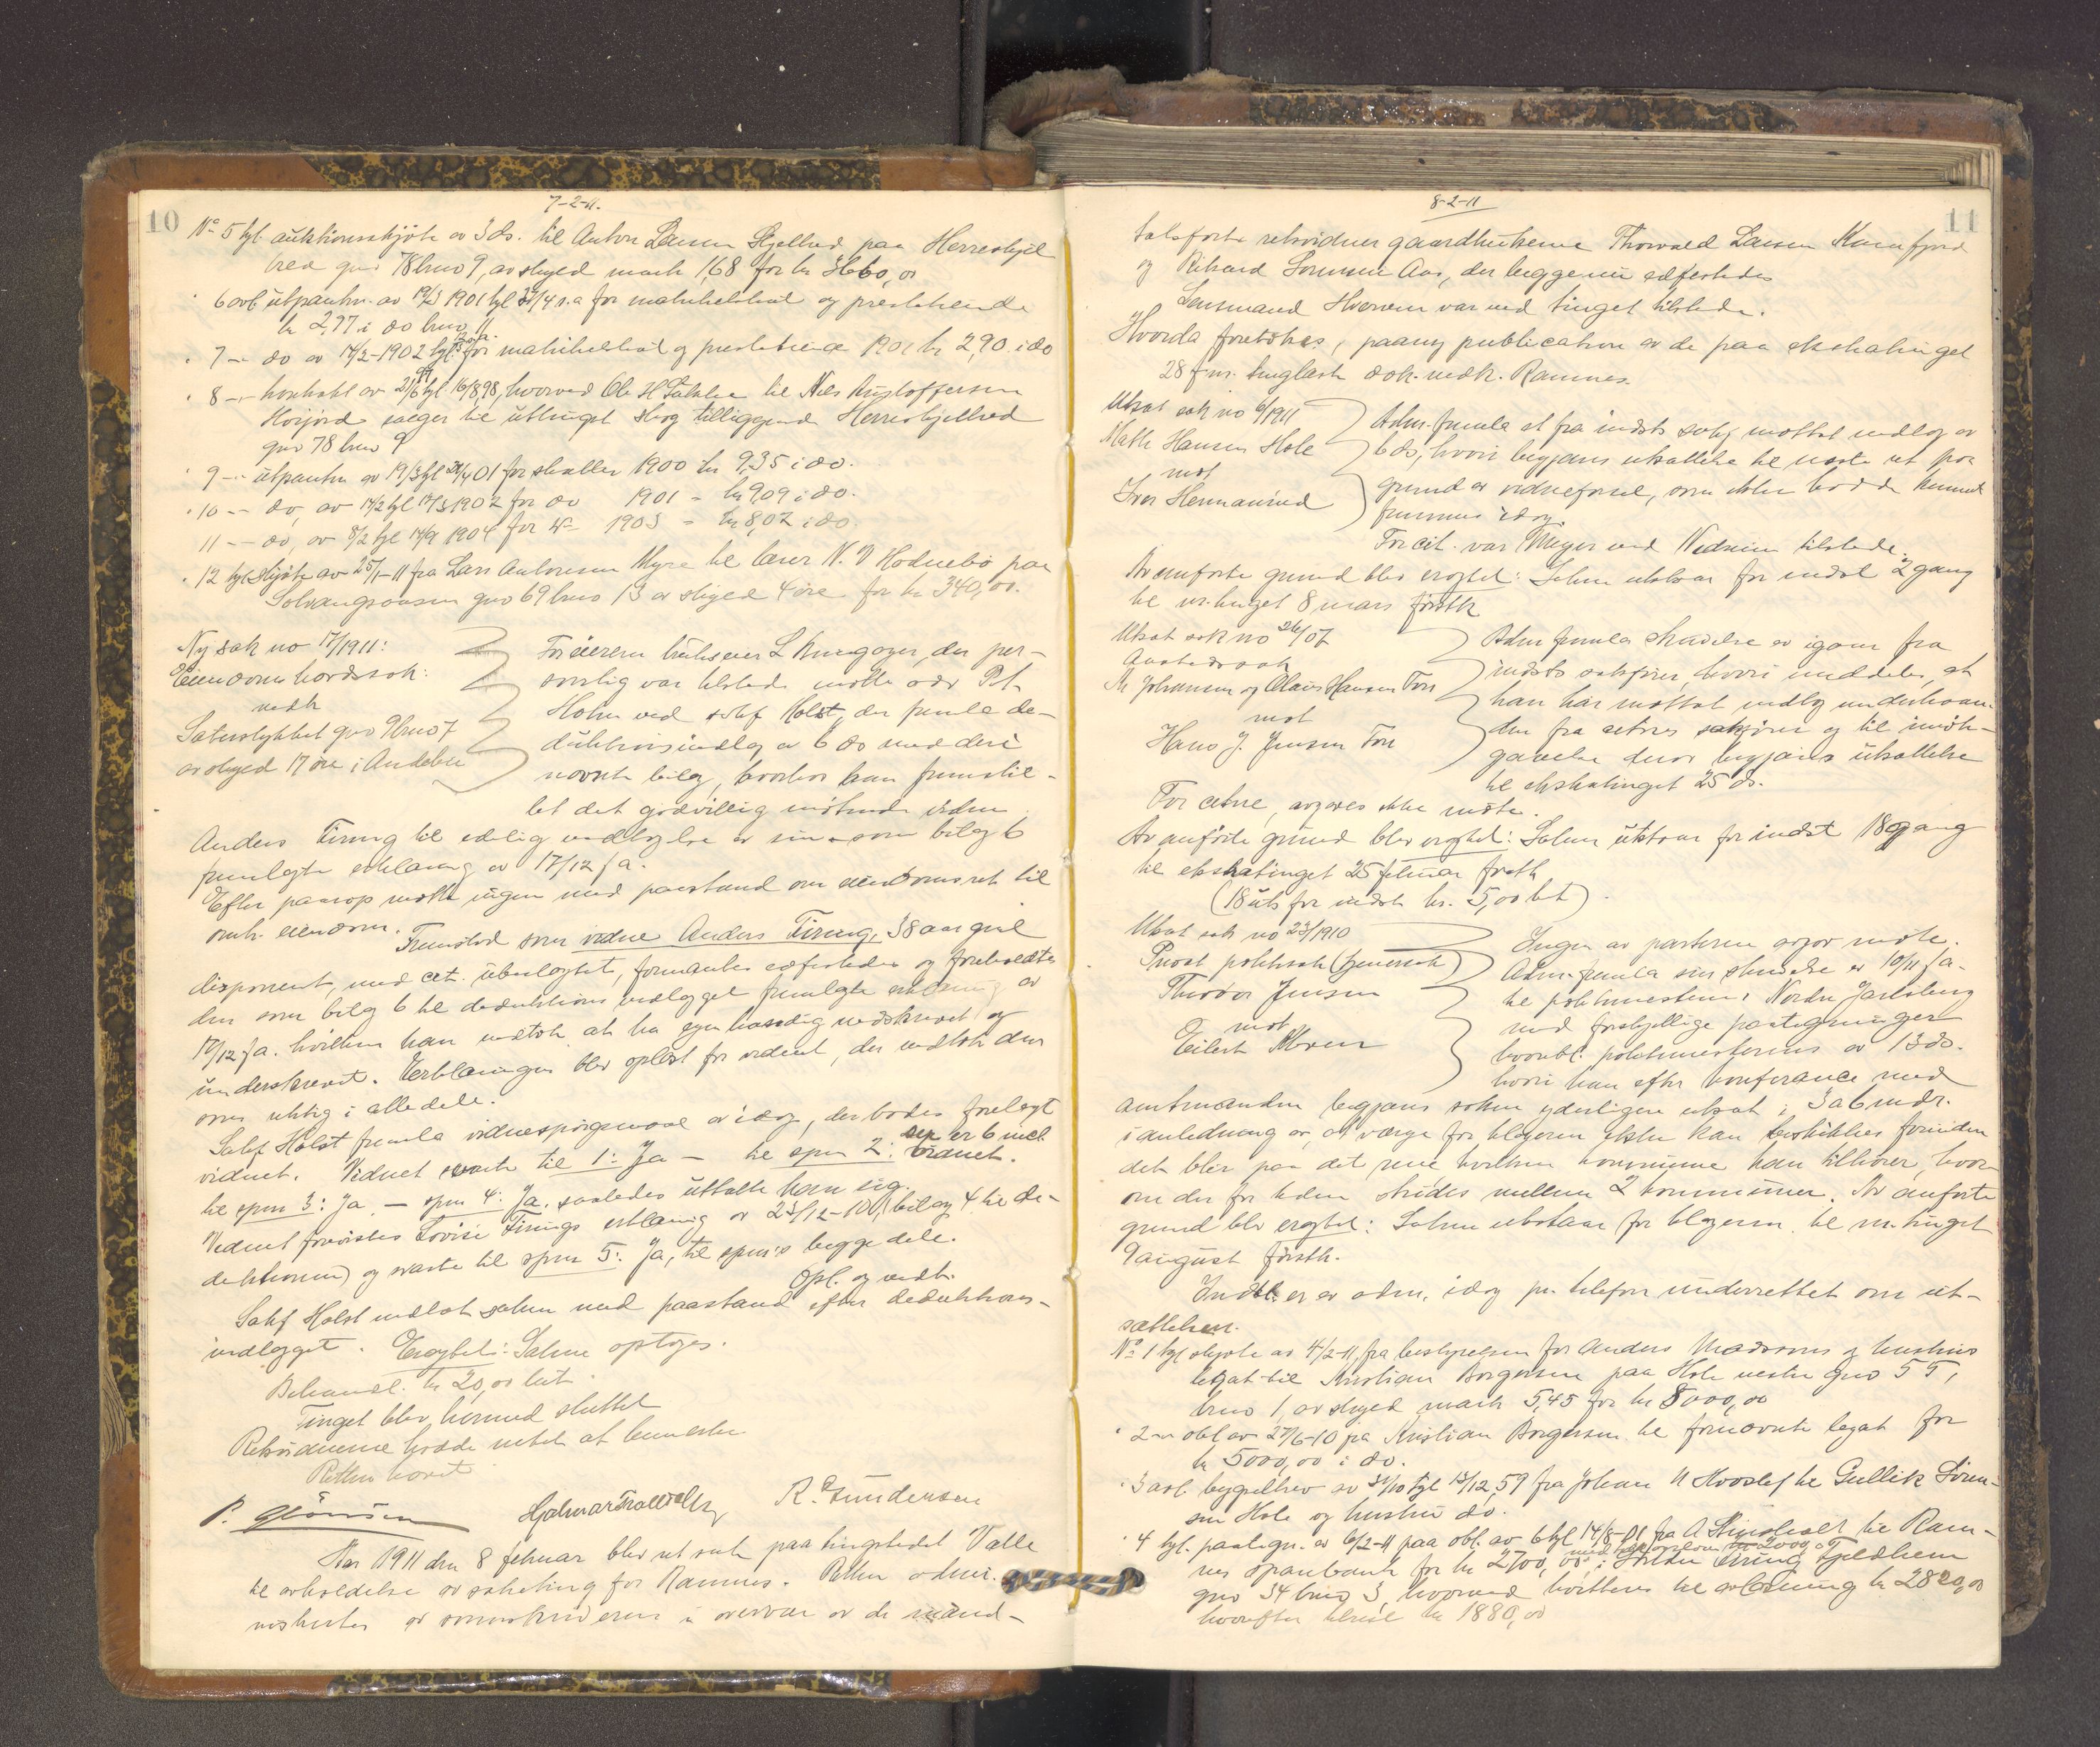 10
7-2-11.
No 5 tgl. auktionsskjøte av 3 ds. til Anton Larsen Skjelbred paa Herreskjel
bred gno 78 bno 9, av skyld mark 1,68 for kr 3660,00
" 6 avl. utpantn. av 19/3 1901 tgl 24/4 s.a for matrikelskat og presteteiende
kr 2,97 i do bno 11
" 7 — do av 14/2-1902 tgl s.a. for matrikelskat og presteteiende 1901 kr 2,90 i do
" 8 — kontrakt av 21/6 tgl 16/8 98, hvorved Ole H Bakke til Nils Kristoffersen
Horjord sælger til uthugst skog tilliggende Herreskjelbred
gno 78 bno 9
" 9 — utpantn av 19/3 tgl 24/4 01 for skatter 1900 kr 9,35 i do.
" 10 — do, av 14/2 tgl 17/3 1902 for do 1901 - kr 9,09 i do.
11 — do, av 8/2 tgl 14/9 1904 for do 1903 - kr 8,02 i do
" 12 tgl skjøte av 25/1-11 fra Lars Antonsen Myre til lærer N. N Hodnebø paa
Solvangsousen gno 69 bno 13 av skyld 4 øre for kr 340,00.
Ny sak no 17/1911:
Eiendomshævdssak:
vedk
Sæterstykket gno 9 bno 7
av skyld 17 øre i Andebu
For eieren brukseier L Krugozer, der per-
sonlig var tilstede møtte adv P.A.
Holm ved sakf Holst, der fremla de-
duktionsindlæg av 6 ds med deri
nævnte bilag, hvorhos han fremstil-
let det godvillig møtende vidne
Anders Firing til edelig vedtagelse av sin som bilag 6
fremlagte erklæring av 17/12 f.a.
Efter paarop møtte ingen med paastand om eiendomsret til
omh. eiendom.
Fremstod som vidne Anders Firing, 38 aar gml
disponent, med cit. ubeslægtet, formantes edfestedes og foreholdtes
den som bilag 6 til deduktionsindlægget fremlagte erklæring av
17/12 f.a. hvilken han vedtok at ha egenhændig nedskrevet og
underskrevet. Erklæringen blev oplæst for vidnet, der vedtok den
som riktig i alle dele.
Sakf Holst fremla vidnespørgsmaal av idag, der bødes forelagt
vidnet. Vidnet svarte til 1: Ja — til spm 2: der er 6 incl. vidnet.
til spm 3: Ja. — spm 4: Ja, saaledes uttalte han sig.
Vidnet forevistes Lovise Firings erklæring av 23/12-10 (bilag 4 til de-
duktionen) og svarte til spm 5: Ja, til spm's begge dele.
Opl. og vedt.
Sakf Holst indlot saken med paastand efter deduktions-
indlægget. Eragtet: Saken optages.
Behandl. kr 20,00 bet.
Tinget blev hermed sluttet
Retsvidnerne hadde intet at bemerke
Retten hævet
P. Glørsen Hjalmar Trolldalen R. Gundersen
Aar 1911 den 8 februar blev ret sat paa tingstedet Valle
til avholdelse av saketing for Ramnes. Retten admi-
nistrertes av sorenskriveren i overvær av de mand-
11
8-2-11
talsførte retsvidner gaardbrukerne Thorvald Larsen Kamfjord
og Rikard Sørensen Aas, der begge nu edfestedes
Lensmand Hvarnen var ved tinget tilstede.
Hvorda foretokes, paany publication av de paa ekstratinget
28 f m. tinglæste dok. vedk. Ramnes.
Utsat sak no 6/1911
Math Hansen Hole
mot
Iver Hermanrud
Adm. fremla et fra indst. sakf. mottat indlæg av
6 ds, hvori begjæres utsættelse til næste ret paa
grund av vidneførsel, som ikke hadde kunnet
fremmes idag.
For cit. var Meyer ved Nedrum tilstede.
Av anførte grund blev eragtet: Saken utstaar for indst 2 gang
til m.tinget 8 mars førstk
Utsat sak no 26/07
Aastedssak
M. Johansen og Olaus Hansen Fon
mot
Hans J. Jensen Fon
Adm fremla skrivelse av igaar fra
indst's sakfører, hvori meddeles, at
han har mottat indlæg underhaan-
den fra citn's sakfører og til imøte-
gaaelse derav begjæres utsættelse
til ekstratinget 25 ds.
For citne, avgaves ikke møte.
Av anførte grund blev eragtet: Saken utstaar for indst 18 gang
til ekstratinget 25 februar førstk
(18 uts for indst kr. 5,00 bet).
Utsat sak no 23/1910
Privat politisak (tjenersak)
Theodor Jensen
mot
Eilert Moen
Ingen av parterne avgav møte.
Adm. fremla sin skrivelse av 10/11 f.a.
til politimesteren i Nordre Jarlsberg
med forskjellige paategninger
hvoribl. politimesterens av 13 ds.
hvori han efter konferance med
amtmanden begjærer saken yderligere utsat i 3 a 6 mdr.
i anledning av, at værge for klageren ikke kan beskikkes forinden
det blir paa det rene hvilken kommune han tilhører, hvor-
om der for tiden strides mellem 2 kommuner. Av anførte
grund blev eragtet: Saken utstaar for klageren til m.tinget
9 august førstk.
Indkl. er av adm. idag pr. telefon underrettet om ut-
sættelsen.
No 1 tgl skjøte av 4/2-11, fra bestyrelsen for Anders Madsens og hustrus
legat til Kristian Borgersen paa Hole vestre gno 55,
bno 1, av skyld mark 5,45 for kr 8000,00
" 2 — obl av 27/6-10 fra Kristian Borgersen til fornævnte legat for
kr 5000,00 i do.
" 3 avl. bygselbrev av 31/10 tgl 13/12 59 fra Johan N Hvoslef til Gullik Søren-
sen Hole og hustru do.
" 4 tgl. paategn. av 6/2-11 paa obl. av 6 tgl 14/8-01 fra A til Ram-
nes sparebank for kr 2700,00, i Firing Fjeldheim
gno 34 bno 3, hvorved kvitteres til avlæsning kr 2820,00
hvorefter tilrest kr 1880,00